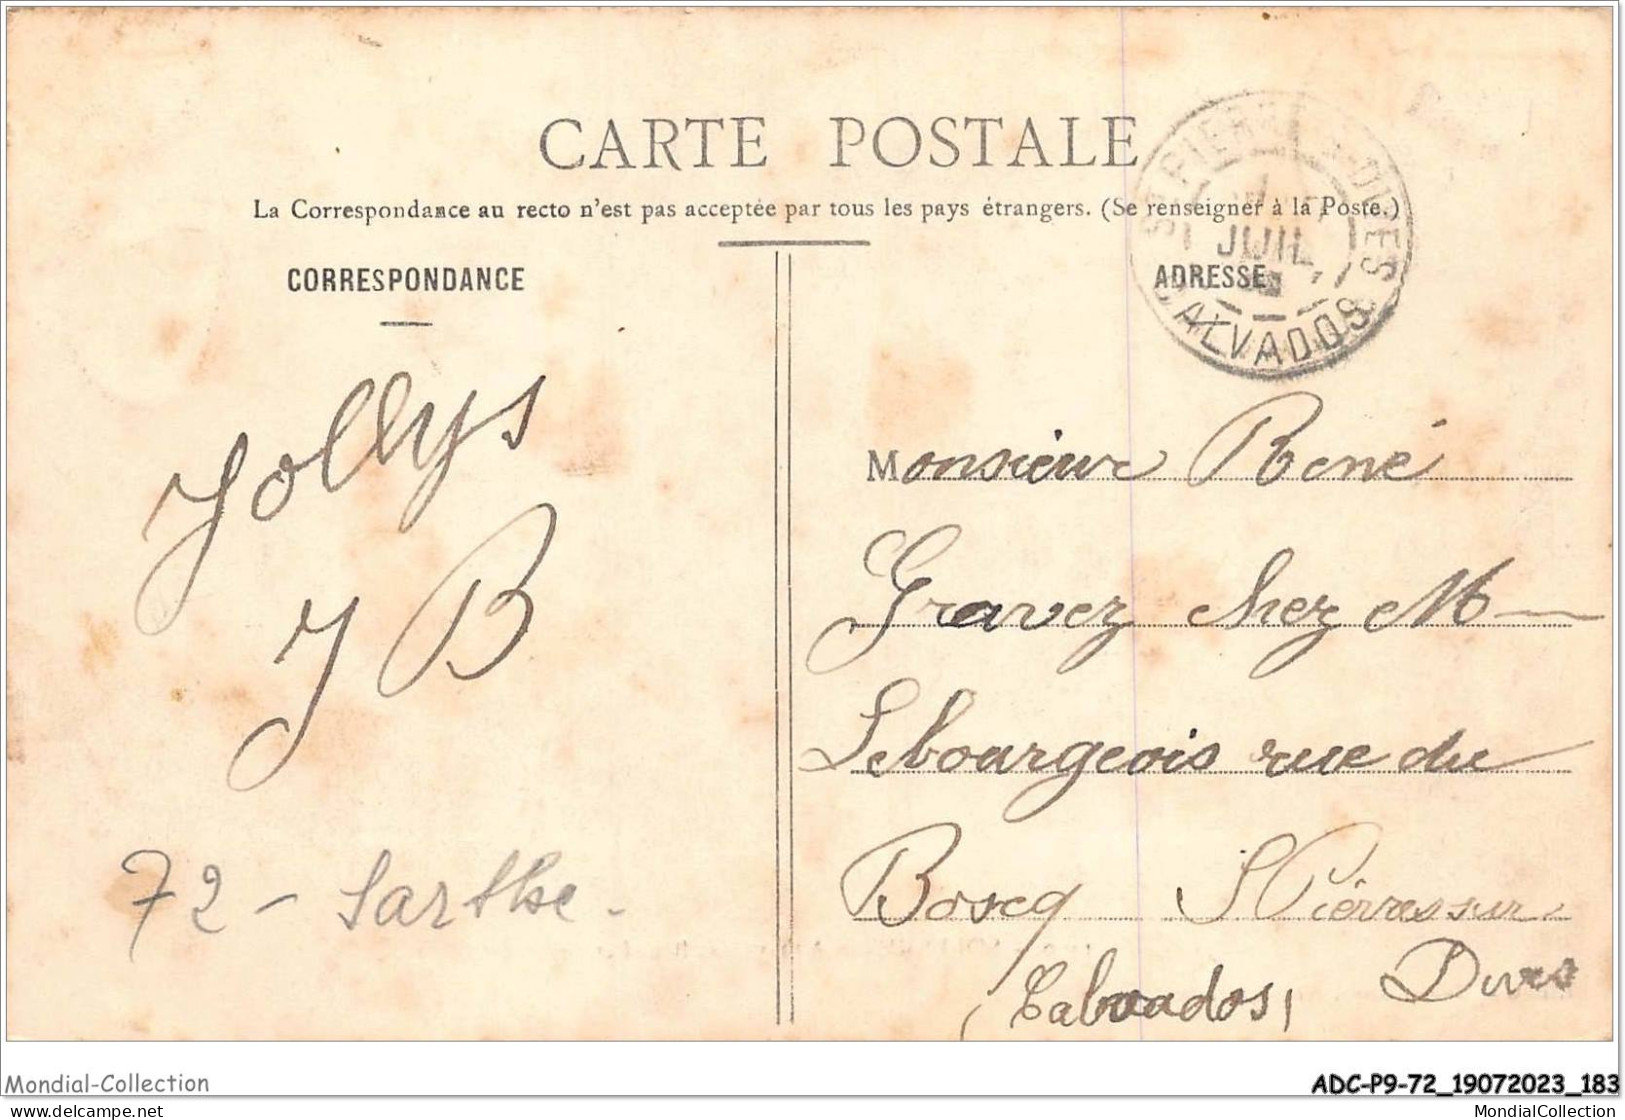 CARTE POSTALE
La Correspondance au recto n'est pas acceptée par tous les pays étrangers. (Se renseigner à la Poste.)
CORRESPONDANCE
ADRESSE
JUIL
CALVADOS
Jollys
JB
72 - Sarthe -
Monsieur René
Gravez chez M
Lebourgeois rue du
Boscq St Pierre sur
Dives
(Calvados)
Mondial-Collection
ADC-P9-72_19072023_183
www.delcampe.net
MondialCollection